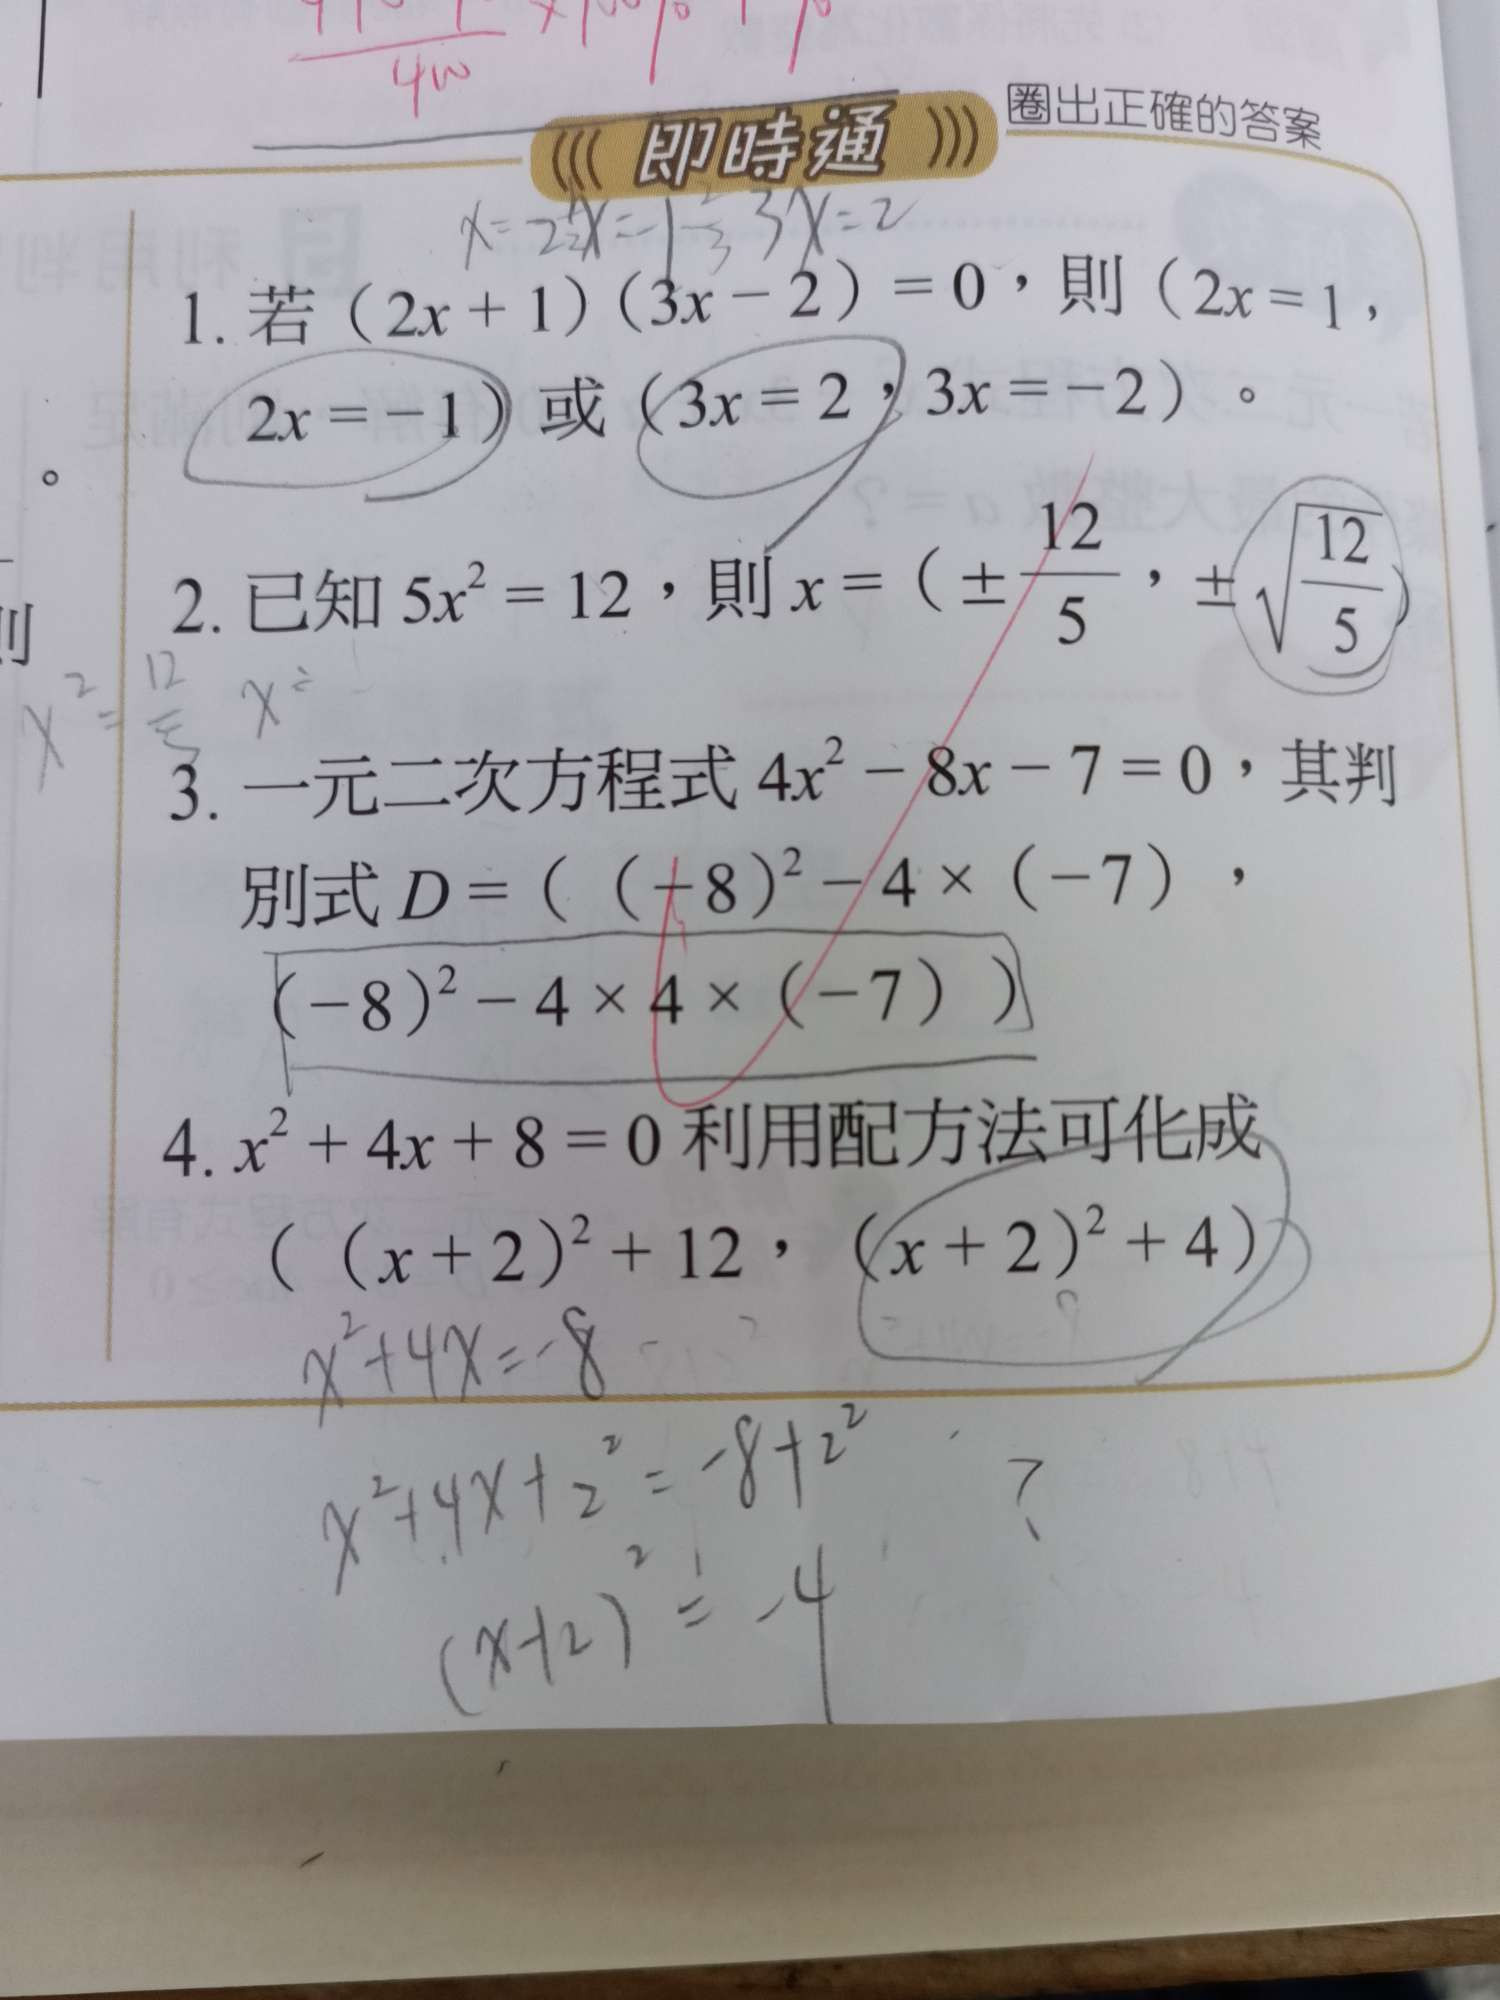 400
即時通 圈出正確的答案
3x=2
1. 若(2x+1)(3x-2)=0,則(2x=1,
2x=-1)或(3x=2,3x=-2)。
2. 已知 5x²=12,則 x=(±12/5,±√(12/5))
x²=12/5
3. 一元二次方程式 4x²-8x-7=0,其判
別式 D=((-8)²-4×(-7),
(-8)²-4×4×(-7))
4. x²+4x+8=0 利用配方法可化成
((x+2)²+12,(x+2)²+4)
x²+4x=-8
x²+4x+2²=-8+2² ?
(x+2)²=-4